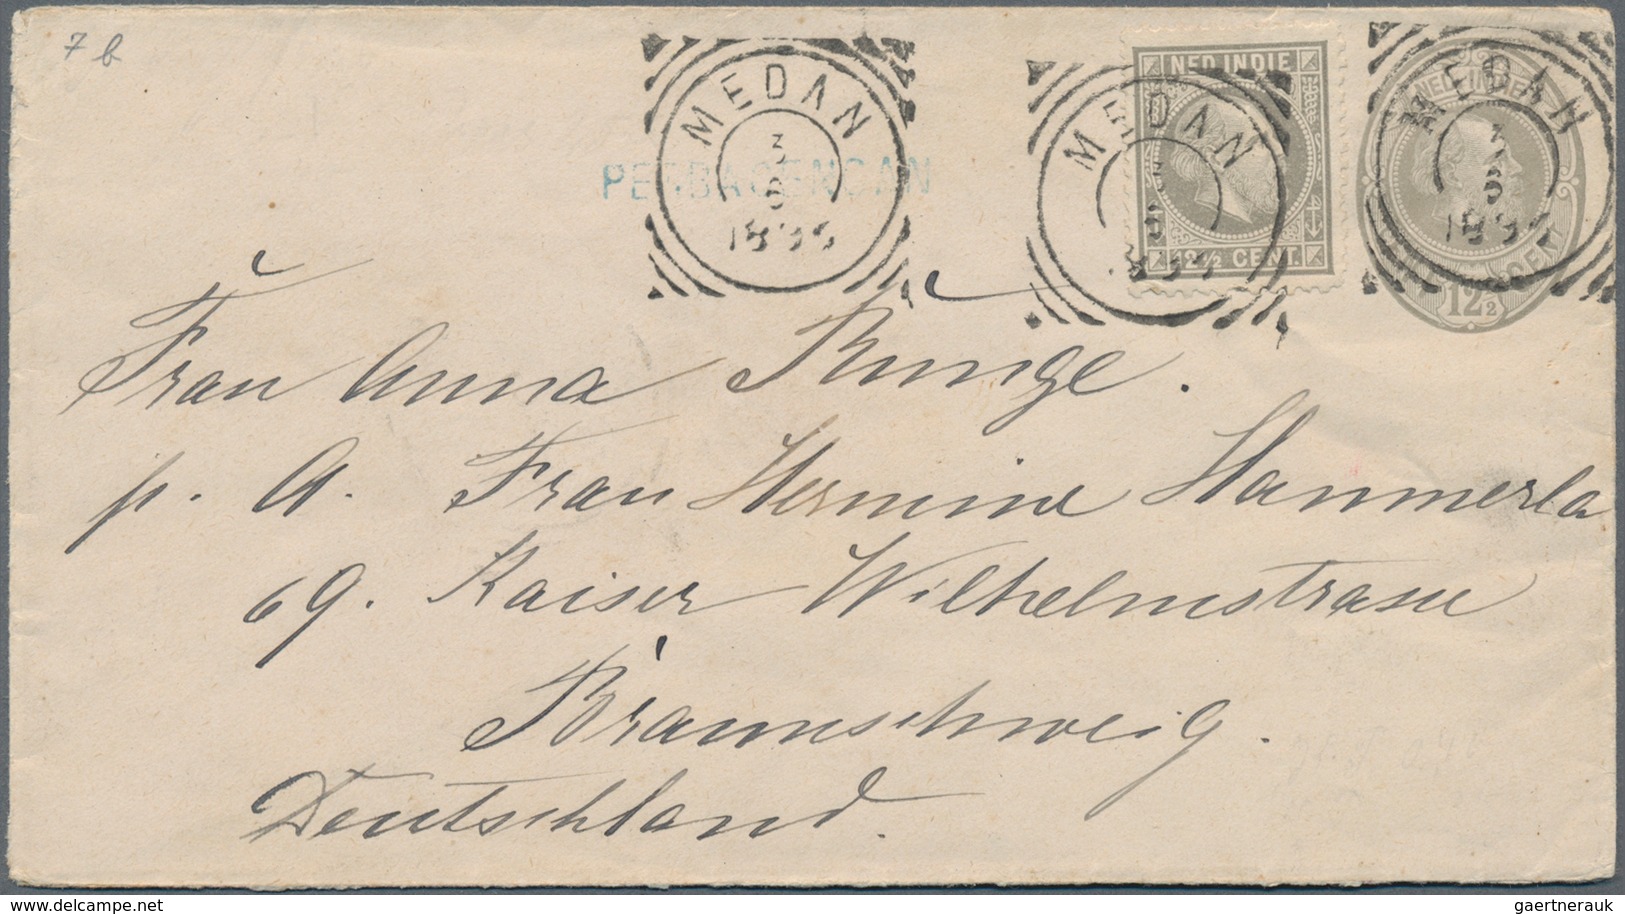 7 b
MEDAN
3
8
1895
PERBAOENGAN
MEDAN
NED. INDIE
12½ CENT.
MEDAN
3
8
NED. INDIE
CENT
12½
Frau Anna Runge.
p. A. Frau Hermine Hammerla
69. Kaiser Wilhelmstrasse
Braunschweig.
Deutschland.
delcampe.net
gaertnerauk